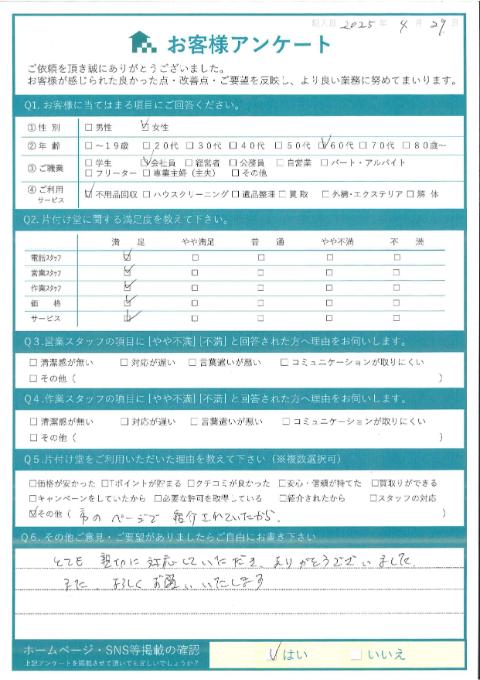 記入日 2025 年 4 月 29 日
お客様アンケート
ご依頼を頂き誠にありがとうございました。
お客様が感じられた良かった点・改善点・ご要望を反映し、より良い業務に努めてまいります。
Q1. お客様に当てはまる項目にご回答ください。
①性 別 □男性 ☑女性
②年 齢 □～19歳 □20代 □30代 □40代 □50代 ☑60代 □70代 □80歳～
③ご職業 □学生 ☑会社員 □経営者 □公務員 □自営業 □パート・アルバイト
□フリーター □専業主婦（主夫） □その他
④ご利用サービス ☑不用品回収 □ハウスクリーニング □遺品整理 □買取 □外構・エクステリア □解体
Q2. 片付け堂に関する満足度を教えて下さい。
満 足 やや満足 普 通 やや不満 不 満
電話スタッフ ☑ □ □ □ □
営業スタッフ ☑ □ □ □ □
作業スタッフ ☑ □ □ □ □
価 格 ☑ □ □ □ □
サービス ☑ □ □ □ □
Q3. 営業スタッフの項目に[やや不満][不満]と回答された方へ理由をお伺いします。
□清潔感が無い □対応が遅い □言葉遣いが悪い □コミュニケーションが取りにくい
□その他（ ）
Q4. 作業スタッフの項目に[やや不満][不満]と回答された方へ理由をお伺いします。
□清潔感が無い □対応が遅い □言葉遣いが悪い □コミュニケーションが取りにくい
□その他（ ）
Q5. 片付け堂をご利用いただいた理由を教えて下さい（※複数選択可）
□価格が安かった □Tポイントが貯まる □クチコミが良かった □安心・信頼が持てた □買取りができる
□キャンペーンをしていたから □必要な許可を取得している □紹介されたから □スタッフの対応
☑その他（ 市のページで紹介されていたから。 ）
Q6. その他ご意見・ご要望がありましたらご自由にお書き下さい
とても 親切に対応していただき、ありがとうございました
また、よろしくお願いいたします
ホームページ・SNS等掲載の確認
上記アンケートを掲載させて頂いても宜しいでしょうか？
☑はい □いいえ